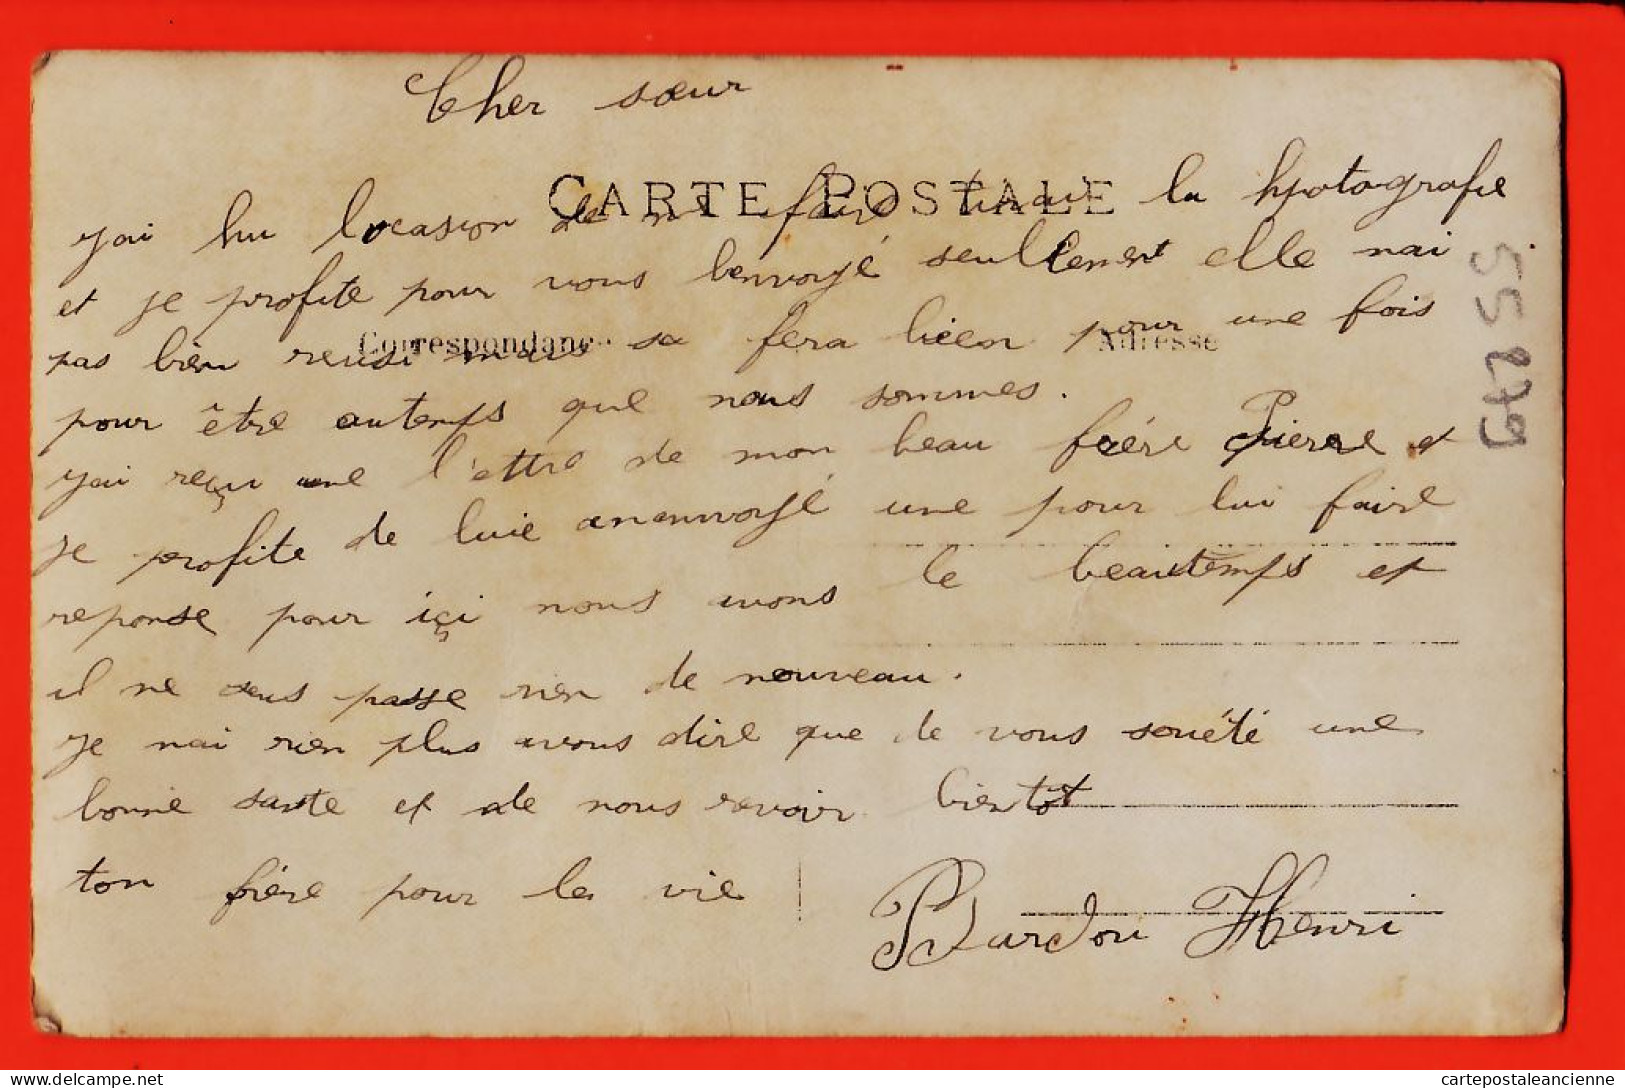 Cher sœur
CARTE POSTALE
jai hu locasion de me faire tirai la hpotografie
et je profite pour vous lenvoyé seullement elle nai
Correspondance Adresse
pas bien reusi mais sa fera bien pour une fois
pour être autemps que nous sommes.
jai reçu une l'ettre de mon beau frére Pierre et
je profite de luie anenvoyé une pour lui faire
reponse pour içi nous avons le beautemps et
il ne sens passe rien de nouveau.
je nai rien plus avous dire que de vous souété une
bonne sante et de nous revoir bientot
ton frère pour la vie
Bardou Henri
55279
cartepostaleancienne.com
cartepostaleancienne